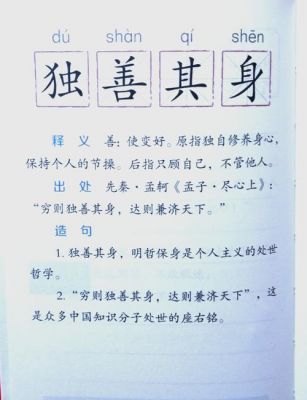 dú shàn qí shēn
独善其身
释 义 善：使变好。原指独自修养身心，
保持个人的节操。后指只顾自己，不管他人。
出 处 先秦·孟轲《孟子·尽心上》：
“穷则独善其身，达则兼济天下。”
造 句
1. 独善其身，明哲保身是个人主义的处世
哲学。
2.“穷则独善其身，达则兼济天下”，这
是众多中国知识分子处世的座右铭。